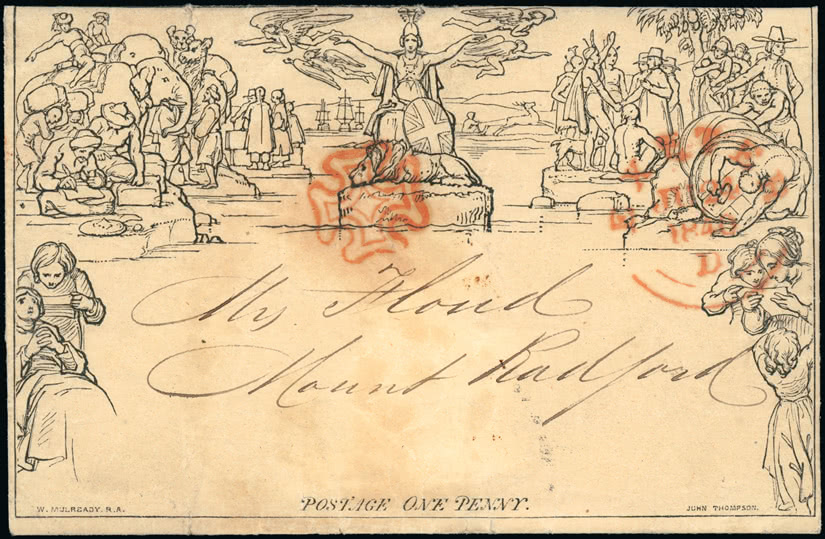 Mrs Floud
Mount Radford
POSTAGE ONE PENNY.
W. MULREADY. R.A.
JOHN THOMPSON.